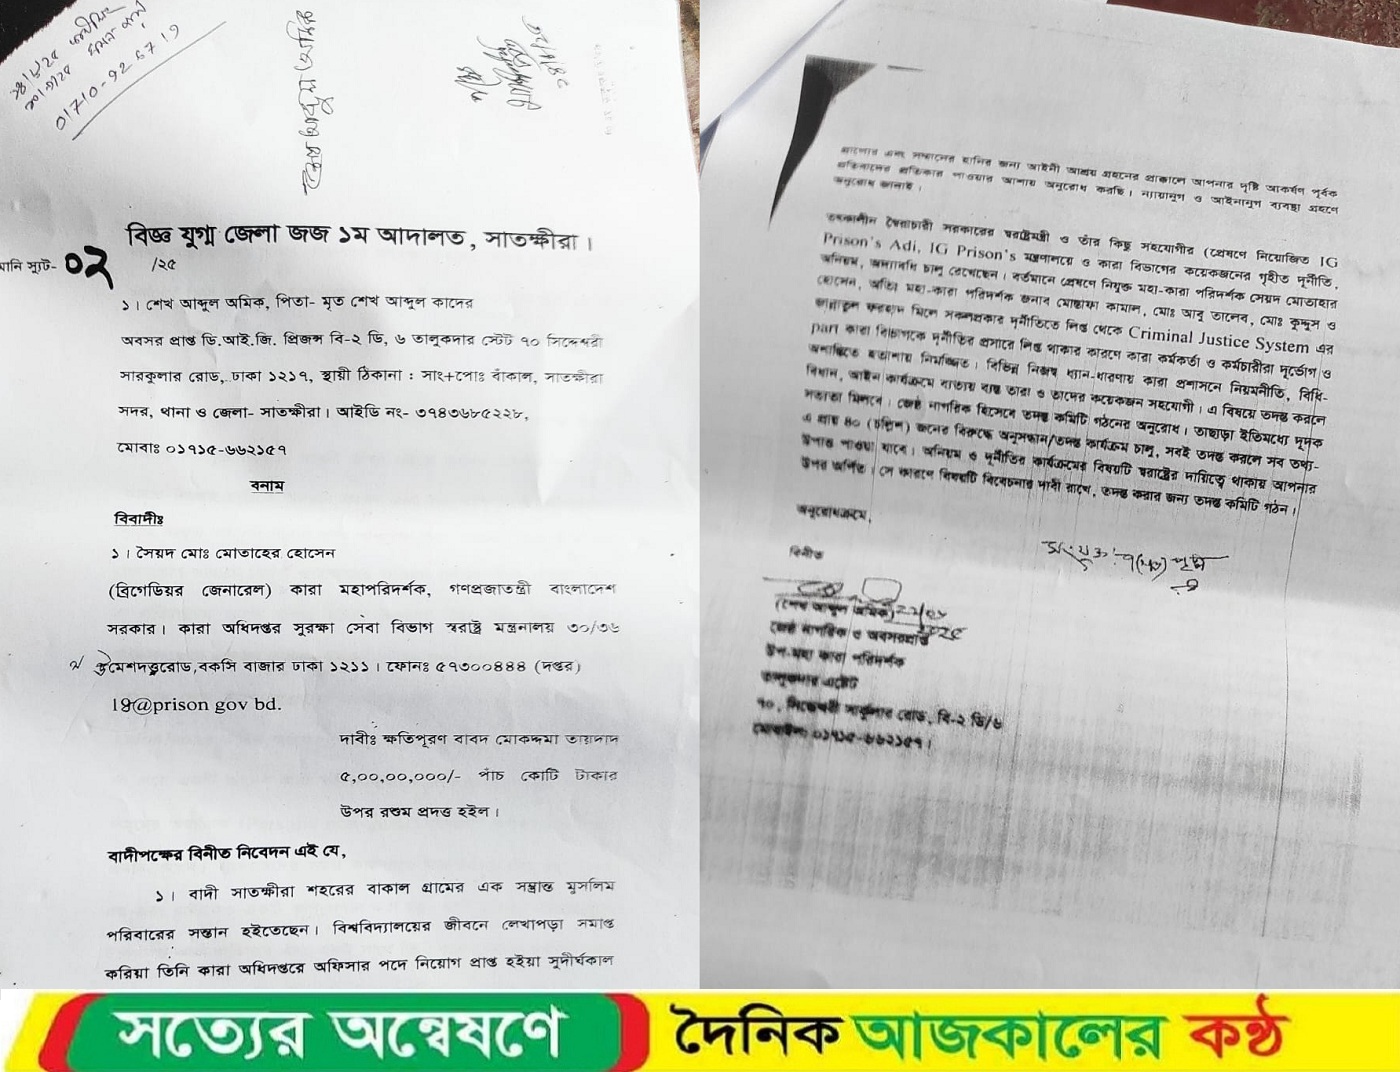 ০1710-926719
শেখ আব্দুল অমিক
বিজ্ঞ যুগ্ম জেলা জজ ১ম আদালত, সাতক্ষীরা।
মানি স্যুট- ০২ /২৫
১। শেখ আব্দুল অমিক, পিতা- মৃত শেখ আব্দুল কাদের
অবসর প্রাপ্ত ডি.আই.জি. প্রিজন্স বি-২ ডি, ৬ তালুকদার স্টেট ৭০ সিদ্ধেশ্বরী
সারকুলার রোড, ঢাকা ১২১৭, স্থায়ী ঠিকানা : সাং+পোঃ বাঁকাল, সাতক্ষীরা
সদর, থানা ও জেলা- সাতক্ষীরা। আইডি নং- ৩৭৪৩৬৮৫২২৮,
মোবাঃ ০১৭১৫-৬৬২১৫৭
বনাম
বিবাদীঃ
১। সৈয়দ মোঃ মোতাহের হোসেন
(ব্রিগেডিয়র জেনারেল) কারা মহাপরিদর্শক, গণপ্রজাতন্ত্রী বাংলাদেশ
সরকার। কারা অধিদপ্তর সুরক্ষা সেবা বিভাগ স্বরাষ্ট্র মন্ত্রনালয় ৩০/৩৬
উমেশদত্তরোড,বকসি বাজার ঢাকা ১২১১। ফোনঃ ৫৭৩০০৪৪৪ (দপ্তর)
19@prison gov bd.
দাবীঃ ক্ষতিপূরণ বাবদ মোকদ্দমা তায়দাদ
৫,০০,০০,০০০/- পাঁচ কোটি টাকার
উপর রশুম প্রদত্ত হইল।
বাদীপক্ষের বিনীত নিবেদন এই যে,
১। বাদী সাতক্ষীরা শহরের বাকাল গ্রামের এক সম্ভ্রান্ত মুসলিম
পরিবারের সন্তান হইতেছেন। বিশ্ববিদ্যালয়ের জীবনে লেখাপড়া সমাপ্ত
করিয়া তিনি কারা অধিদপ্তরে অফিসার পদে নিয়োগ প্রাপ্ত হইয়া সুদীর্ঘকাল
এবং সম্মানের হানির জন্য আইনী আশ্রয় গ্রহনের প্রাক্কালে আপনার দৃষ্টি আকর্ষণ পূর্বক
প্রতিকার পাওয়ার আশায় অনুরোধ করছি। ন্যায়ানুগ ও আইনানুগ ব্যবস্থা গ্রহণে
অনুরোধ জানাই।
তৎকালীন স্বৈরাচারী সরকারের স্বরাষ্ট্রমন্ত্রী ও তাঁর কিছু সহযোগীর (প্রেষণে নিয়োজিত IG
Prison's Adi, IG Prison's মন্ত্রণালয়ে ও কারা বিভাগের কয়েকজনের গৃহীত দূর্নীতি,
অনিয়ম, অদ্যাবধি চালু রেখেছেন। বর্তমানে প্রেষণে নিযুক্ত মহা-কারা পরিদর্শক সৈয়দ মোতাহার
হোসেন, অতিঃ মহা-কারা পরিদর্শক জনাব মোস্তাফা কামাল, মোঃ আবু তালেব, মোঃ কুদ্দুস ও
ফরহাদ মিলে সকলপ্রকার দূর্নীতিতে লিপ্ত থেকে Criminal Justice System এর
part কারা বিভাগকে দূর্নীতির প্রসারে লিপ্ত থাকার কারণে কারা কর্মকর্তা ও কর্মচারীরা দূর্ভোগ ও
নিমজ্জিত। বিভিন্ন নিজস্ব ধ্যান-ধারণায় কারা প্রশাসনে নিয়মনীতি, বিধি-
বিধান, আইন কার্যক্রমে ব্যত্যয় ব্যস্ত তারা ও তাদের কয়েকজন সহযোগী। এ বিষয়ে তদন্ত করলে
সত্যতা মিলবে। জ্যেষ্ঠ নাগরিক হিসেবে তদন্ত কমিটি গঠনের অনুরোধ। তাছাড়া ইতিমধ্যে দুদক
এ প্রায় ৪০ (চল্লিশ) জনের বিরুদ্ধে অনুসন্ধান/তদন্ত কার্যক্রম চালু, সবই তদন্ত করলে সব তথ্য-
উপাত্ত পাওয়া যাবে। অনিয়ম ও দূর্নীতির কার্যক্রমের বিষয়টি স্বরাষ্ট্রের দায়িত্বে থাকায় আপনার
উপর অর্পিত। সে কারণে বিষয়টি বিবেচনার দাবী রাখে, তদন্ত করার জন্য তদন্ত কমিটি গঠন।
অনুরোধক্রমে,
বিনীত
(শেখ আব্দুল অমিক)
জ্যেষ্ঠ নাগরিক ও অবসরপ্রাপ্ত
উপ-মহা কারা পরিদর্শক
তালুকদার এস্টেট
৭০, সিদ্ধেশ্বরী সার্কুলার রোড, বি-২ ডি/৬
মোবাইলঃ ০১৭১৫-৬৬২১৫৭।
সত্যের অন্বেষণে দৈনিক আজকালের কণ্ঠ